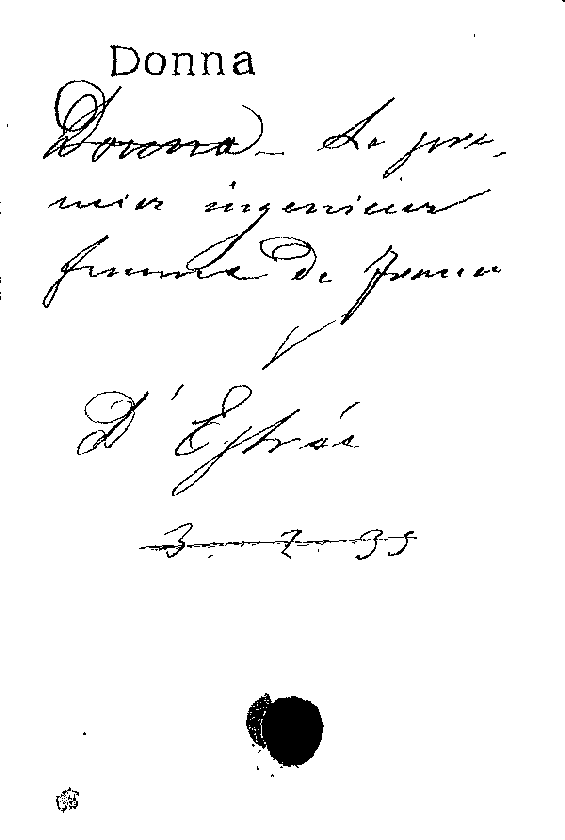 Donna
Donna - Le pre-
mier ingenieur
femme de France
D'Estrée
3. 7. 35